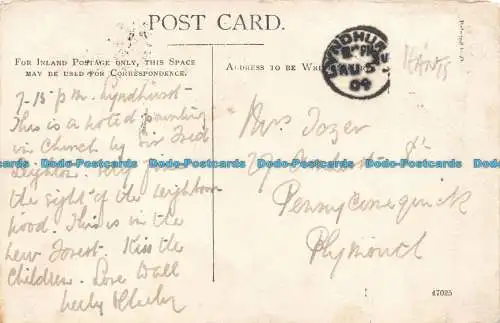 POST CARD.
FOR INLAND POSTAGE ONLY, THIS SPACE
MAY BE USED FOR CORRESPONDENCE.
ADDRESS TO BE
LYNDHURST
AU 5
04
HANTS
7-15 p.m. Lyndhurst
This is a noted painting
in Church by Sir Fred
Leighton. Very fine
the sight of the neighbour
hood. This is in the
New Forest. Kiss the
Children. Love to all
Mrs Tozer
27
Pennycomequick
Plymouth
47025
Dodo-Postcards Dodo-Postcards Dodo-Postcards Dodo-Postcards Dodo-Postcards